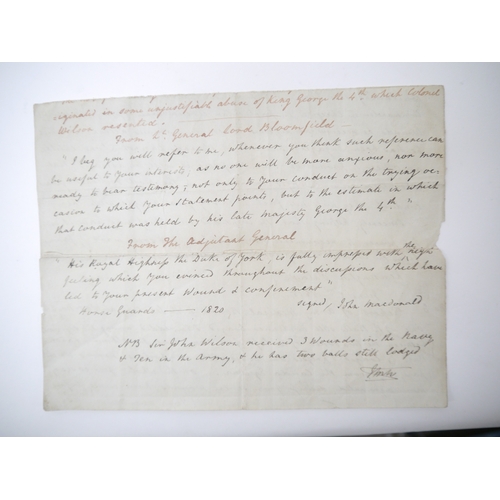 originated in some unjustifiable abuse of King George the 4th. which Colonel
Wilson resented.
From Lt. General Lord Bloomfield
"I beg you will refer to me, whenever you think such reference can
be useful to your interests, as no one will be more anxious, nor more
ready to bear testimony, not only to your conduct on the trying oc-
casion to which your statement points, but to the estimate in which
that conduct was held by his late Majesty George the 4th."
From The Adjutant General
"His Royal Highness the Duke of York, is fully impressed with the high
feeling which you evinced throughout the discussions which have
led to your present Wound & confinement"
Horse Guards — 1820. signed John Macdonald
NB Sir John Wilson received 3 Wounds in the Navy
& Ten in the Army, & he has two balls still lodged